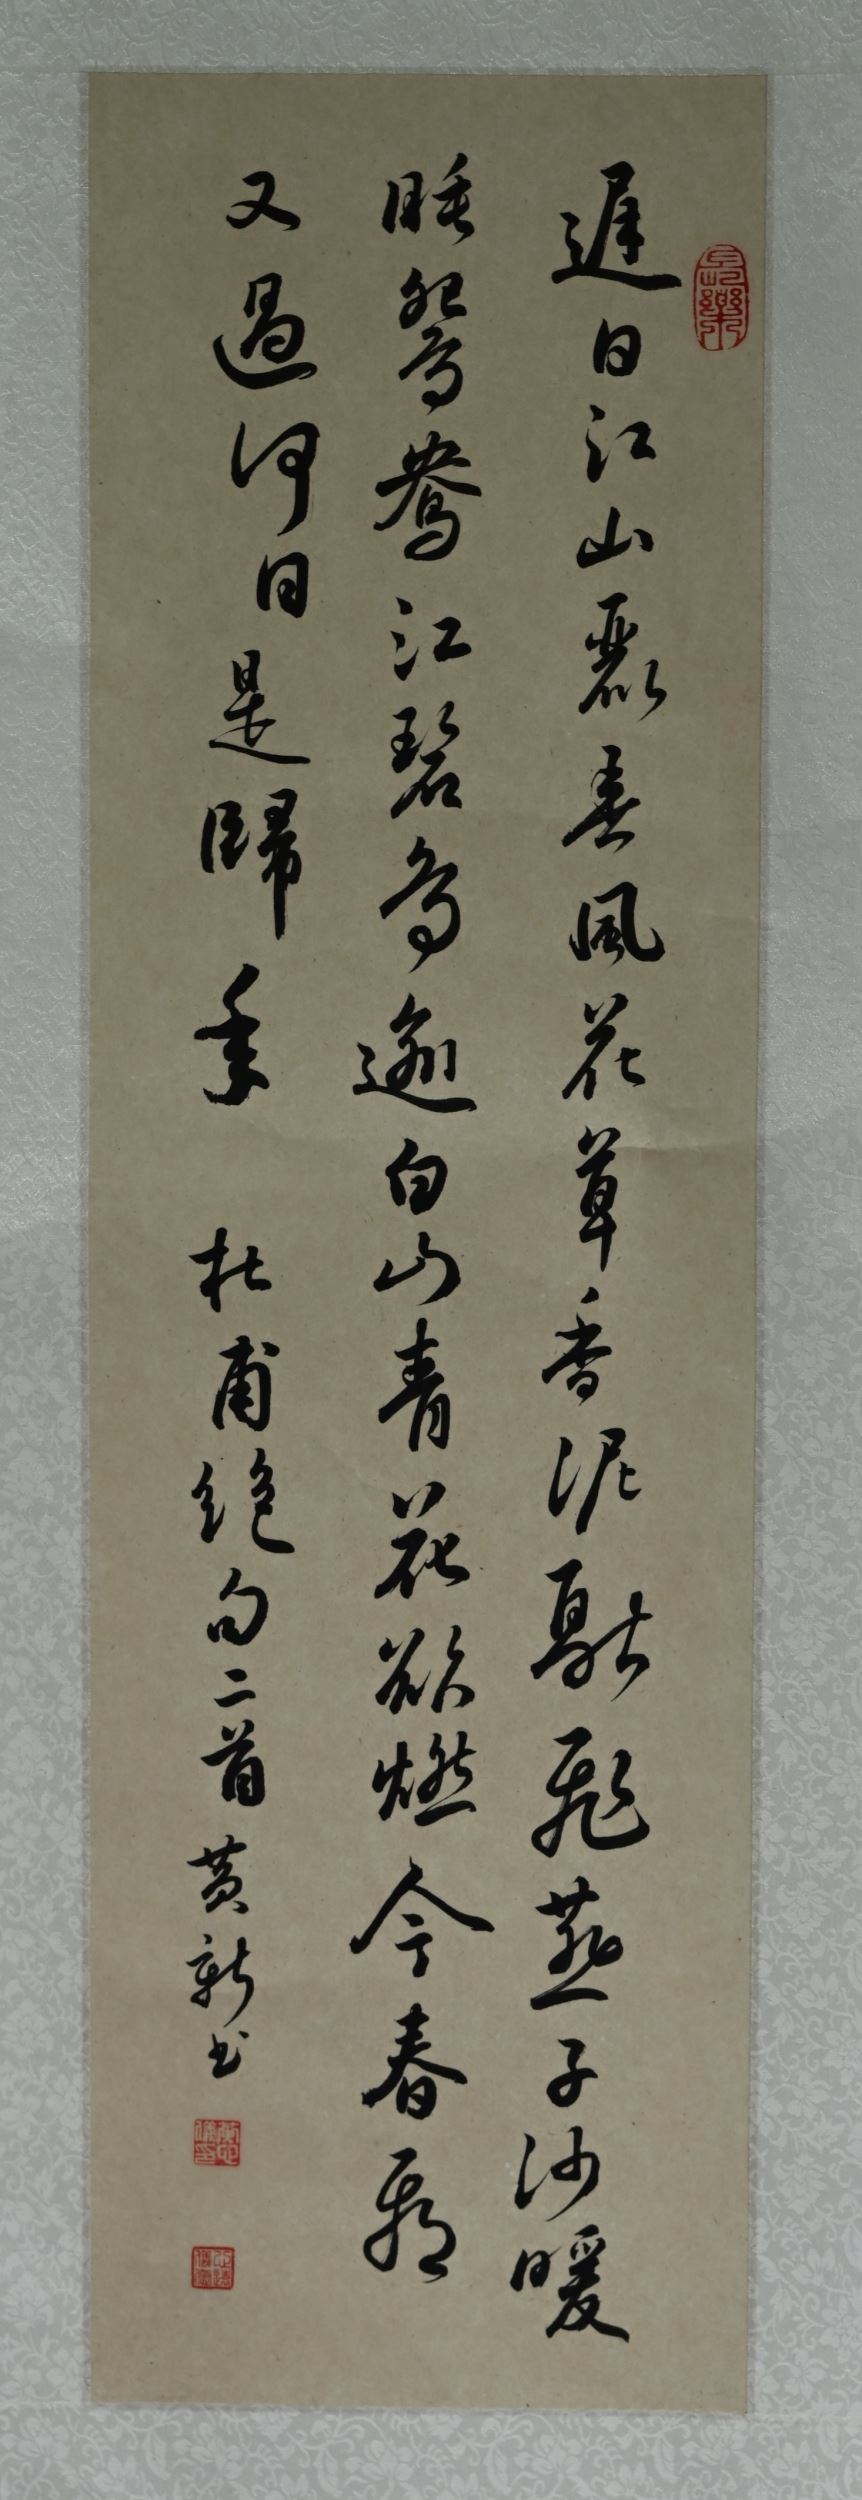 遲日江山麗春風花草香泥融飛燕子沙暖
睡鴛鴦江碧鳥逾白山青花欲燃今春看
又過何日是歸年 杜甫絕句二首 黃新書